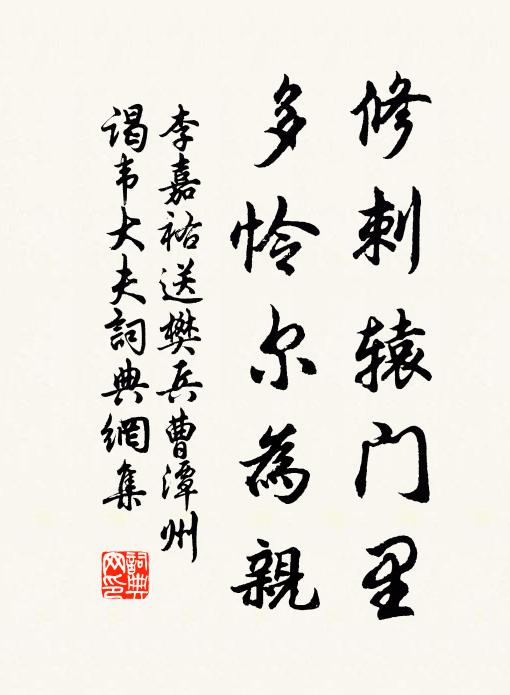 修刺辕门里
多怜尔為親
李嘉祐送樊兵曹潭州
谒韦大夫詞典網集
詞典
网印